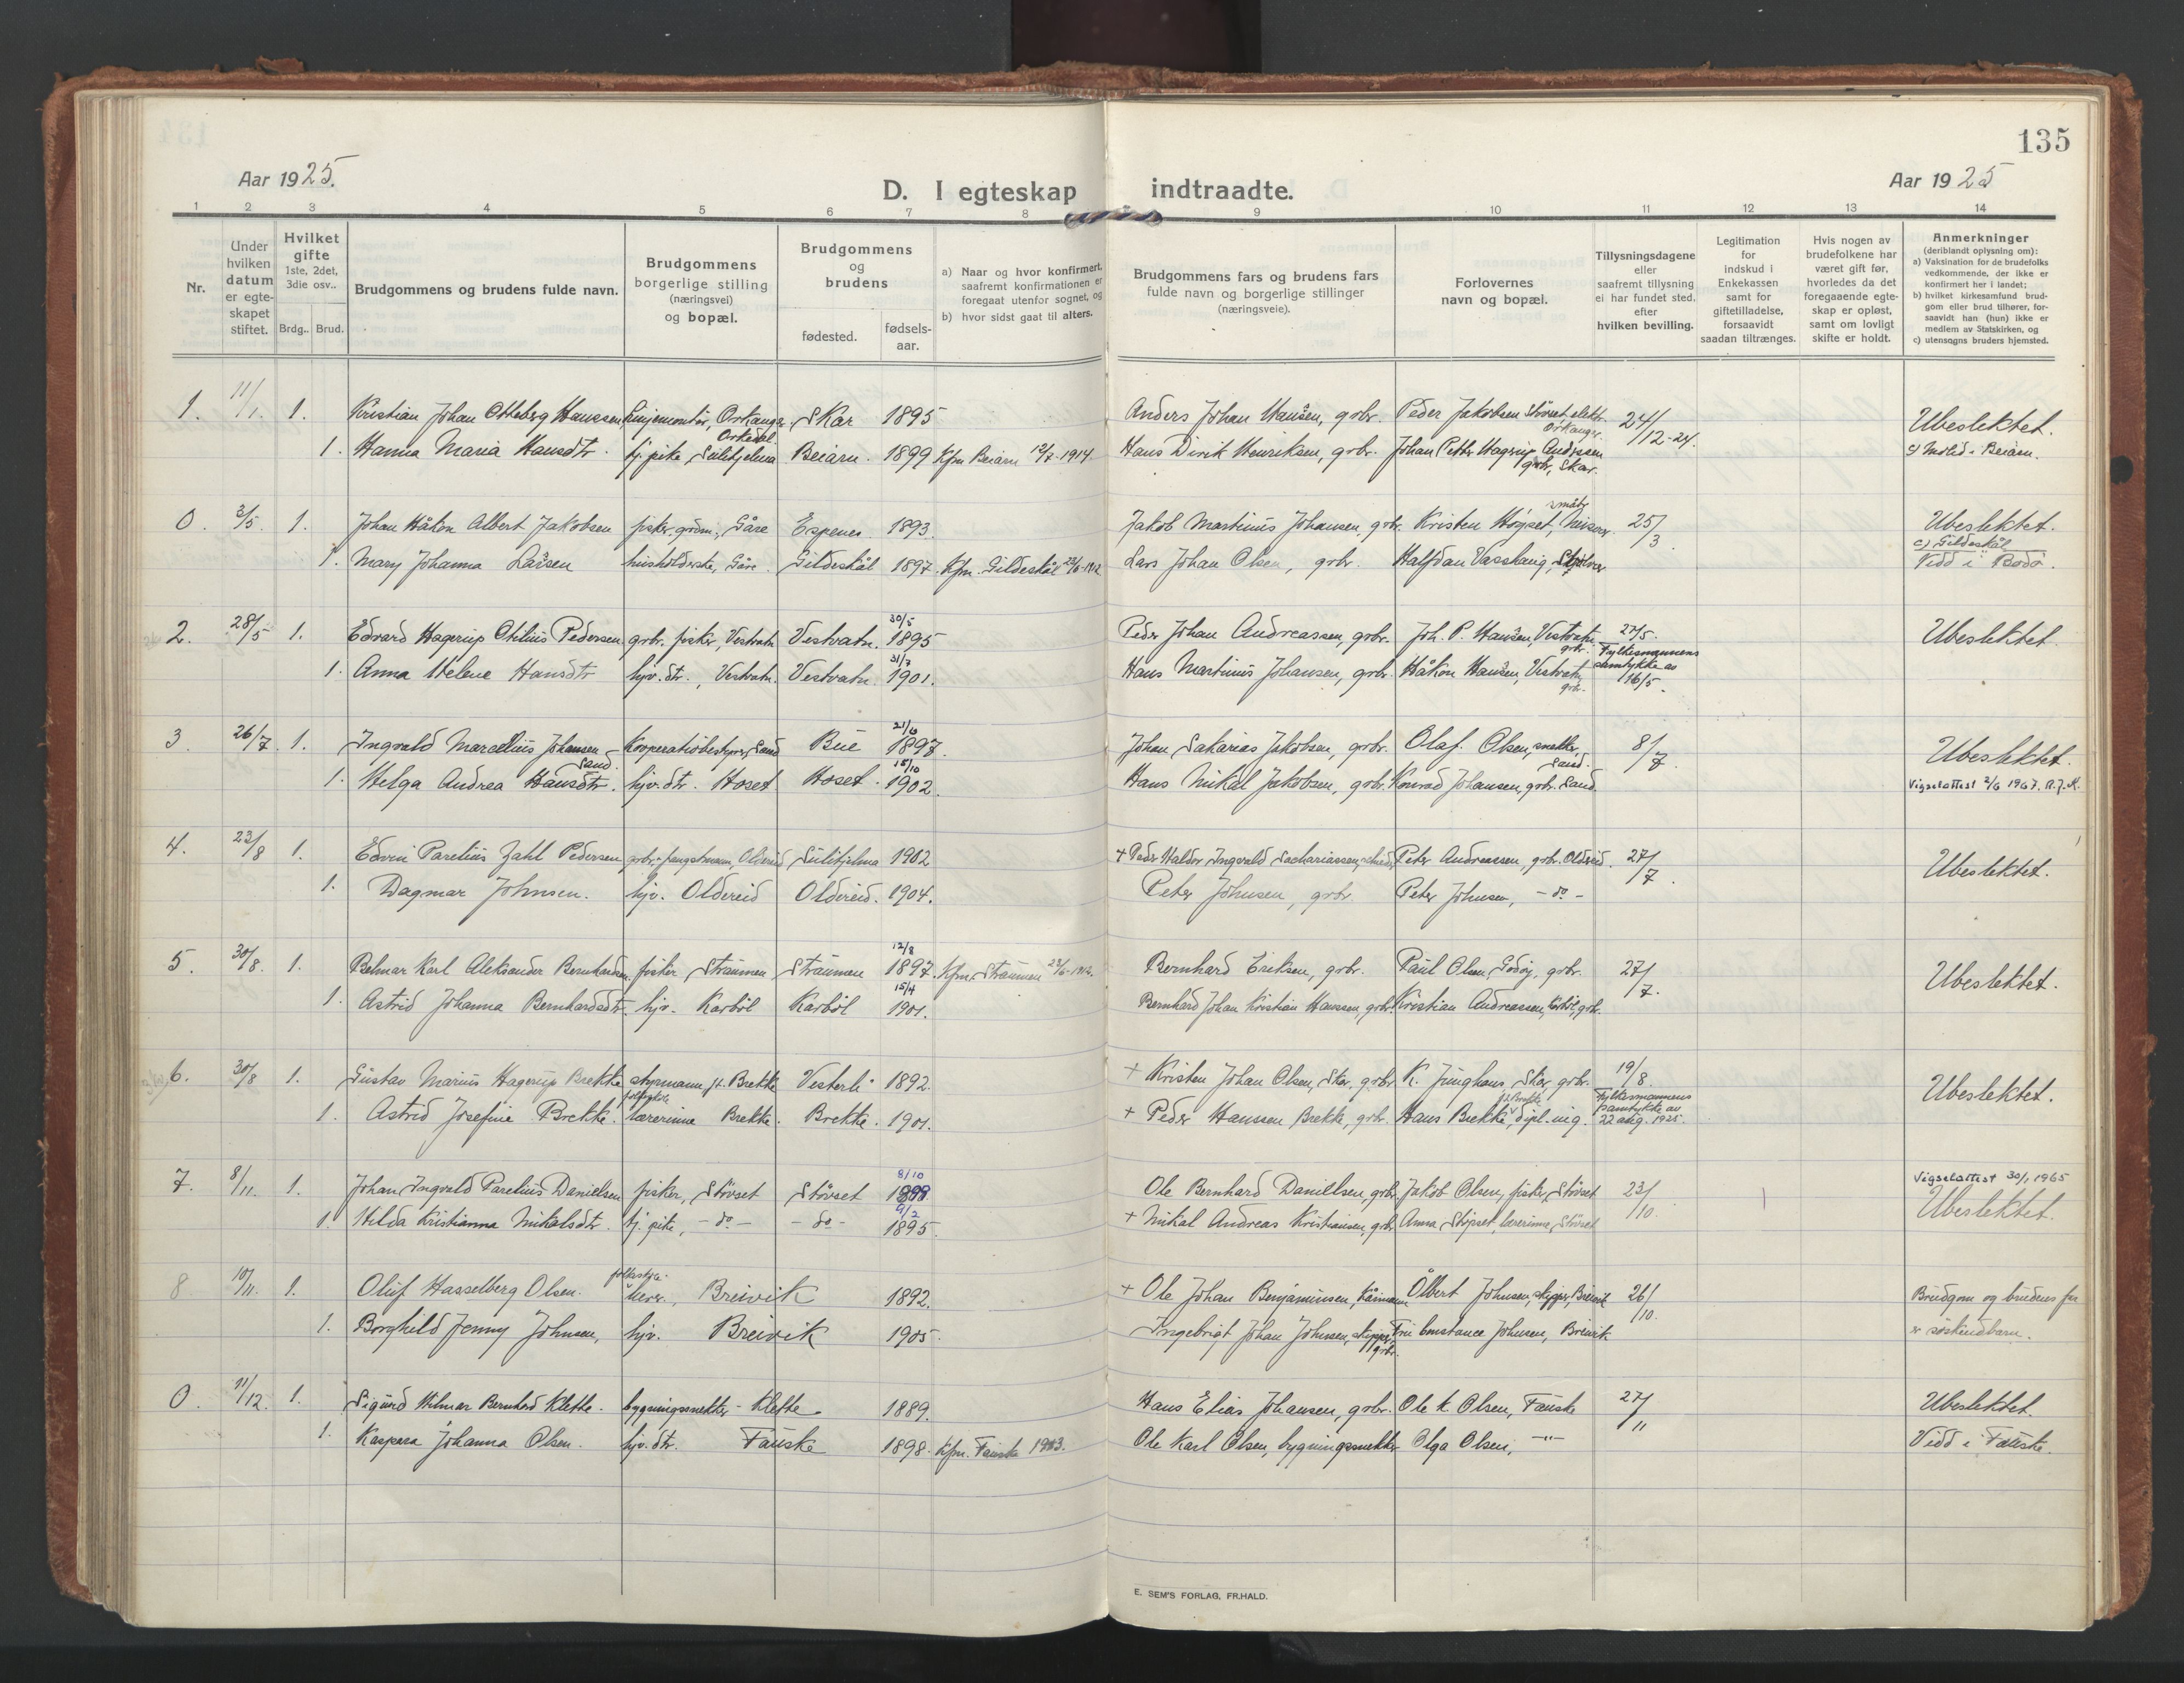 135
Aar 1925.
D. I egteskap indtraadte.
Aar 1925
1 2 3 4 5 6 7 8 9 10 11 12 13 14
Nr.
Under hvilken datum er egteskapet stiftet.
Hvilket gifte 1ste, 2det, 3die osv..
Brdg.. Brud.
Brudgommens og brudens fulde navn.
Brudgommens borgerlige stilling (næringsvei) og bopæl.
Brudgommens og brudens
fødested.
fødselsaar.
a) Naar og hvor konfirmert, saafremt konfirmationen er foregaat utenfor sognet, og
b) hvor sidst gaat til alters.
Brudgommens fars og brudens fars fulde navn og borgerlige stillinger (næringsveie).
Forlovernes navn og bopæl.
Tillysningsdagene eller saafremt tillysning ei har fundet sted, efter hvilken bevilling.
Legitimation for indskud i Enkekassen samt for giftetilladelse, forsaavidt saadan tiltrænges.
Hvis nogen av brudefolkene har været gift før, hvorledes da det foregaaende egteskap er opløst, samt om lovligt skifte er holdt.
Anmerkninger (deriblandt oplysning om):
a) Vaksination for de brudefolks vedkommende, der ikke er konfirmert her i landet;
b) hvilket kirkesamfund brudgom eller brud tilhører, forsaavidt han (hun) ikke er medlem av Statskirken, og
c) utensogns bruders hjemsted.
1. 11/1. 1. Kristian Johan Otteberg Hanssen Linjemontør, Orkanger Orkedal. Skar 1895 Anders Johan Hansen, grbr. Peder Jakobsen Störset, elektr. Orkanger. 24/12-24. Ubeslektet.
1. Hanna Maria Hansdtr. tj. pike, Sulitjelma Beiarn. 1899 Kfm Beiarn 12/7-1914 Hans Dirik Henriksen, grbr. Johan Petter Hagerup Andersen grbr, Skar. c) Beiarn.
0. 3/5. 1. Johan Håkon Albert Jakobsen fisker, Gåre Espenes 1893. Jakob Martinus Johansen, grbr. Kristen Høgset, 25/3 Ubeslektet.
1. Mary Johanna Larsen husholderske, Gåre. Gildeskål 1897. Kfm. Gildeskål 23/6-1912 Lars Johan Olsen, grbr. Halfdan Vasshaug, c) Gildeskål
Vidd i Bodø.
2. 28/5 1. Edvard Hagerup Othilius Pedersen grbr. fisker, Vestvatn Vestvatn. 30/5 1895 Peder Johan Andreassen, grbr. Joh. P. Hansen, Vestvatn grbr. 27/5. Fylkesmannens samtykke av 16/5. Ubeslektet.
1. Anna Helene Hansdtr hjv. dtr., Vestvatn. Vestvatn. 31/7 1901. Hans Martinus Johansen, grbr. Håkon Hansen, Vestvatn grbr.
3. 26/7. 1. Ingvald Marcelius Johansen Sand. Kooperativbestyrer, Sand Bue 21/6 1897. Johan Sakarias Jakobsen, grbr. Olaf Olsen, snekker, Sand. 8/7 Ubeslektet.
1. Helga Andrea Hansdtr. hjv. dtr. Hoset Hoset. 15/10 1902. Hans Mikal Jakobsen, grbr. Konrad Johansen, grbr. Sand. Vigselattest 2/6 1967. A.J.K.
4. 23/8 1. Edvin Parelius Jahl Pedersen grbr. fangstmann, Oldereid Sulitjelma 1902 + Peder Haldor Ingvald Sachariassen, Peter Andreassen, grbr. Oldereid. 27/7. Ubeslektet.
1. Dagmar Johnsen. hjv. Oldereid Oldereid. 1904. Peter Johnsen, grbr. Peter Johnsen, -do-
5. 30/8. 1. Belmar Karl Aleksander Bernhardsen fisker, Straumen Straumen 12/8 1897. Kfm. Straumen 23/6-1912. Bernhard Eriksen, grbr. Paul Olsen, Godøy, grbr. 27/7. Ubeslektet.
1. Astrid Johanna Bernhardsdtr. hjv. Karbøl Karbøl 15/4 1901. Bernhard Johan Kristian Hanssen, grbr. Kristian Andreassen, Karbøl, grbr.
6. 30/8 1. Gustav Marius Hagerup Brekke styrmann, pt. Brekke Vesterli 1892. + Kristen Johan Olsen, Skar, grbr. K. Junghans, Skar, grbr. 19/8. Fylkesmannens samtykke av 22 aug. 1925. Ubeslektet.
1. Astrid Josefine Brekke. lærerinne Brekke. Brekke. 1901. + Peder Hanssen Brekke, grbr. Hans Brekke, dipl.-ing.
7. 8/11. 1. Johan Ingvald Parelius Danielsen fisker, Störset Störset 8/10 1898 Ole Bernhard Daniellsen, grbr. Jakob Olsen, fisker, Störset 23/10. Vigselattest 30/1 1965
Ubeslektet.
1. Hilda Kristianna Mikalsdtr. tj. pike, -do- -do- 9/2 1895. + Mikal Andreas Kristiansen, grbr. Anna Störset, lærerinne, Störset
8 10/11. 1. Oluf Hasselberg Olsen. folkeskole- lærer, Breivik 1892. + Ole Johan Benjaminsen, Kårmann Albert Johnsen, skipper, Breivik 26/10. Brudgom og brudens far er søskendbarn.
1. Borghild Jenny Johnsen, hjv. Breivik 1905. Ingebrigt Johan Johnsen, skipper, grbr. Fru Constance Johnsen, Breivik
0. 11/12. 1. Sigurd Hilmar Bernhard Klette. bygningssnekker - Klette. 1889. Hans Elias Johansen, grbr. Ole K. Olsen, Fauske 27/11 Ubeslektet.
1. Kaspara Johanna Olsen. hjv. dtr. Fauske 1898. Kfm. Fauske 1913. Ole Karl Olsen, bygningssnekker Olga Olsen, -"- Vidd i Fauske.
E. SEM'S FORLAG, FR.HALD.